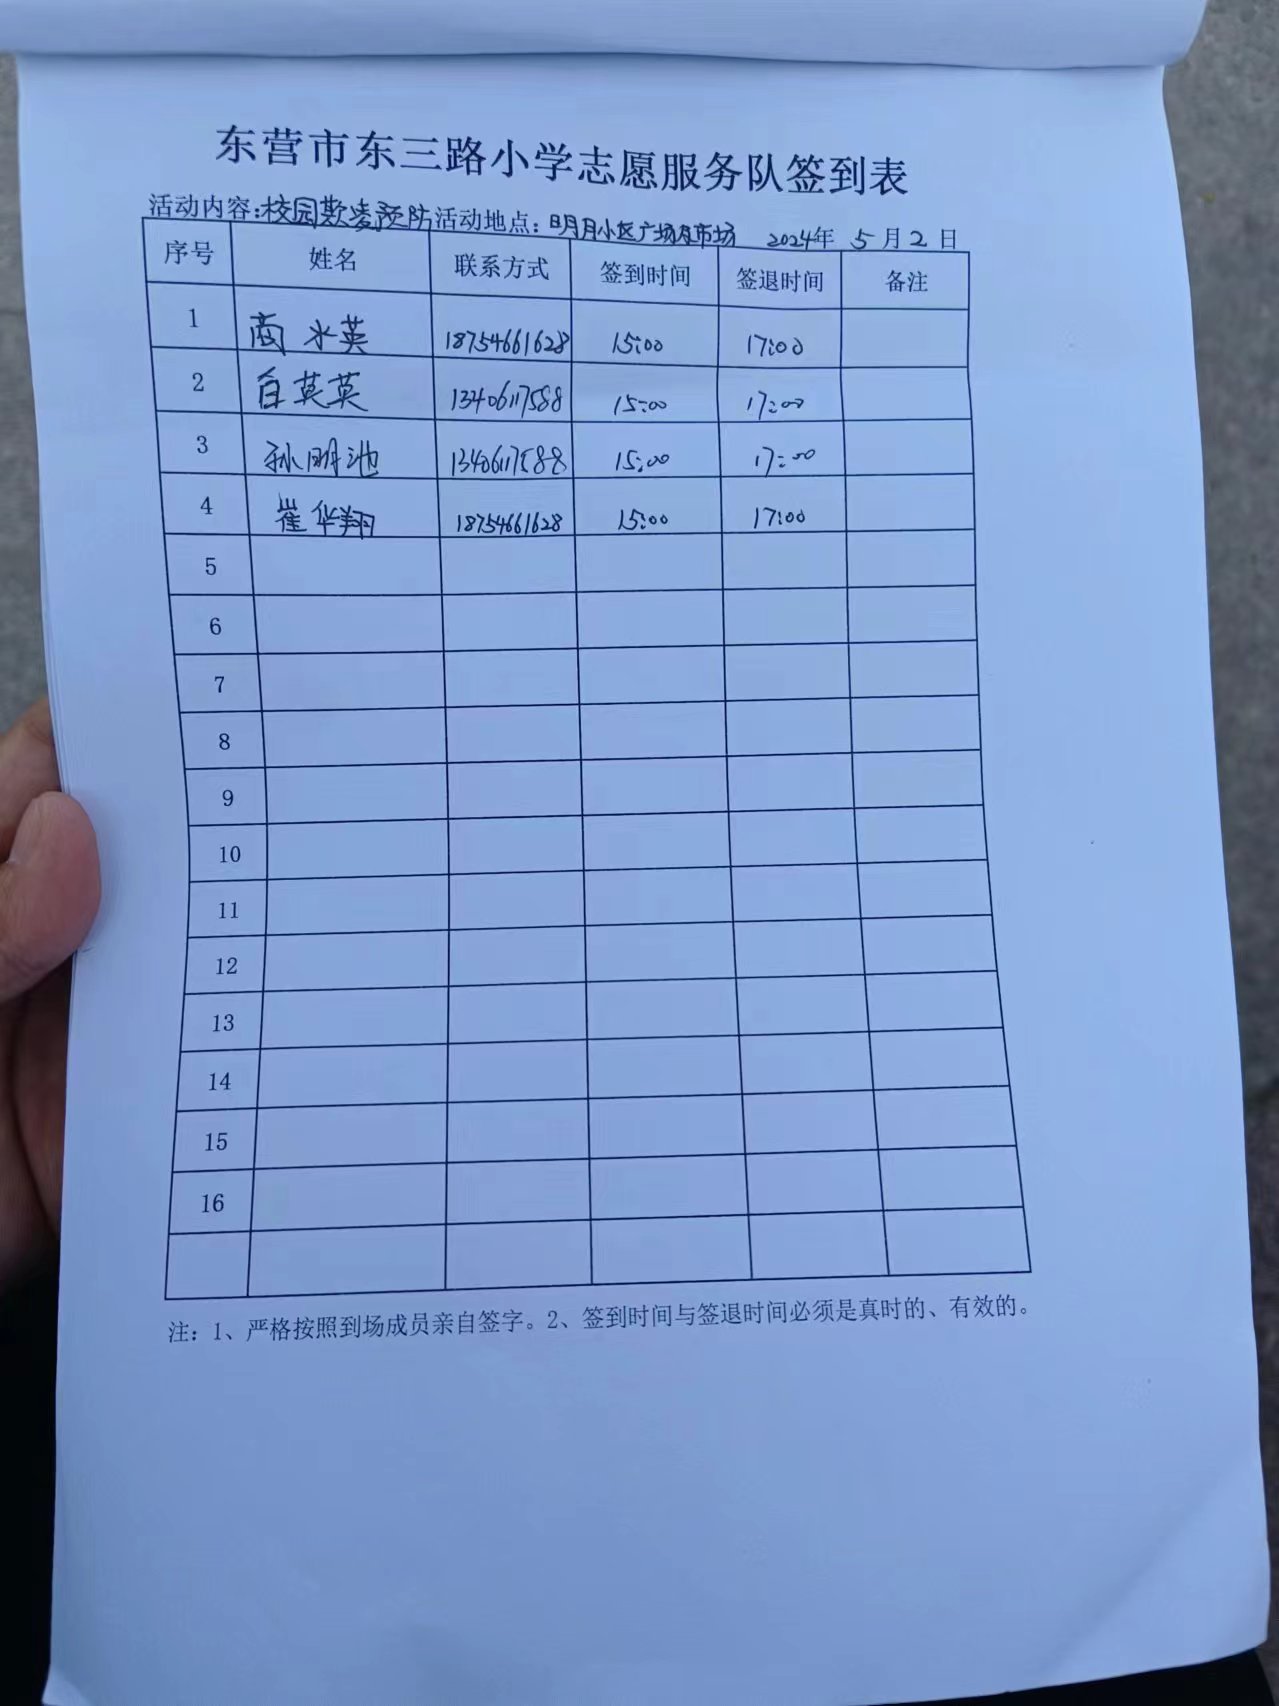 东营市东三路小学志愿服务队签到表
活动内容:校园欺凌预防 活动地点:明月小区广场及市场 2024年 5月2日
序号 姓名 联系方式 签到时间 签退时间 备注
1 商水英 18754661628 15:00 17:00
2 白英英 13406117588 15:00 17:00
3 孙明池 13406117588 15:00 17:00
4 崔华翔 18754661628 15:00 17:00
5
6
7
8
9
10
11
12
13
14
15
16
注:1、严格按照到场成员亲自签字。2、签到时间与签退时间必须是真时的、有效的。